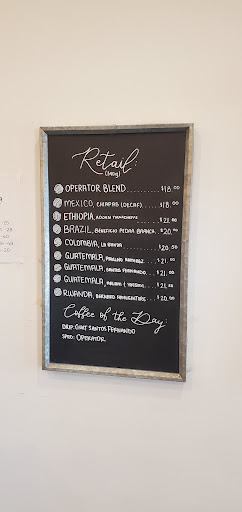 Retail:
(340g)
OPERATOR BLEND............$18.00
MEXICO, CHIAPAS (DECAF)....$18.00
ETHIOPIA, YIRGACHEFFE....$21.00
BRAZIL, BENEFICIO PEDRA BRANCA..$20.00
COLOMBIA, LA........$20.50
GUATEMALA, PAULINO RAMIREZ..$21.00
GUATEMALA, SANTOS FERNANDO..$21.00
GUATEMALA,....$21.50
RWANDA,..$20.00
Coffee of the Day:
DRIP: GUAT SANTOS FERNANDO
SPRO: OPERATOR